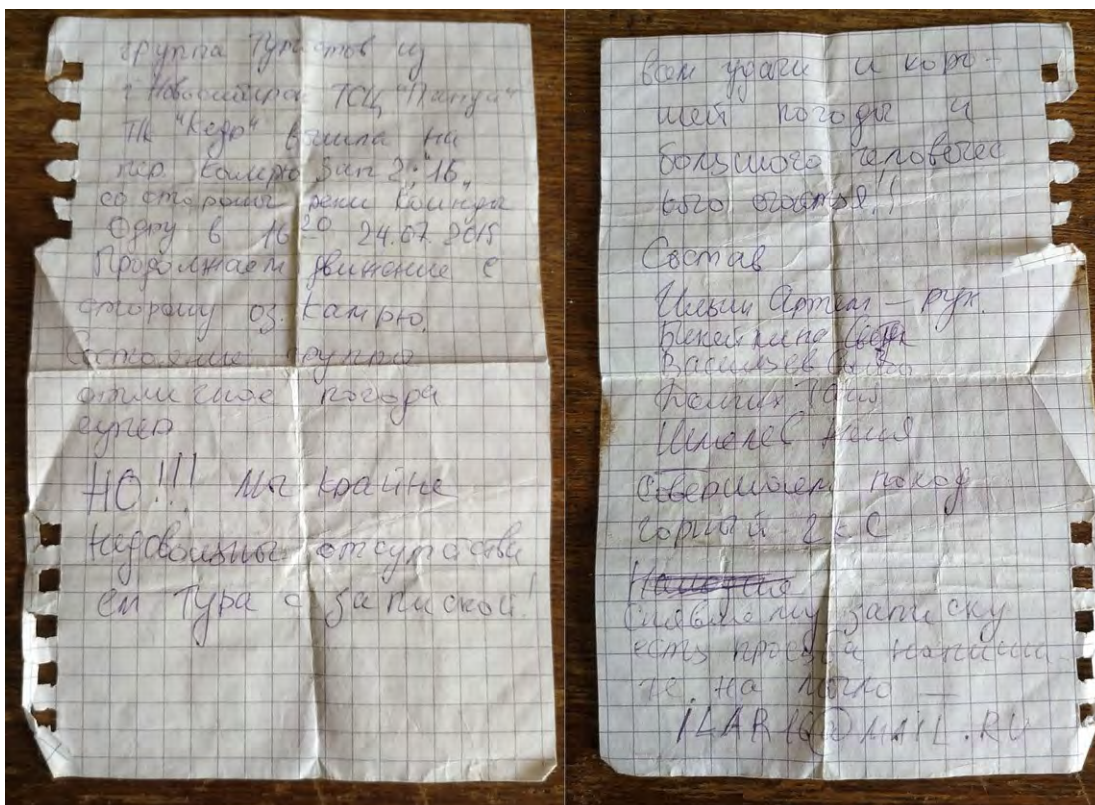 группа туристов из
г Новосибирск ТСЦ "Пилигрим"
ТК "Кедр" вышла на
пер. Камрю
со стороны реки Коинды
Одру в 16 20 24.07.2015
Продолжаем движение в
сторону оз. Камрю.
Состояние группы
отличное погода
супер
НО!!! Мы крайне
недовольны отсутстви
ем тура с запиской!
всем удачи и хоро-
шей погоды и
большого человечес
кого счастья!!
Состав
Ильин Артём — рук.
Васильев
Долгих
Шмелёв
Совершаем поход
горный 2 к С
Снявшему записку
есть просьба напиши
те на мыло —
ILAR16@MAIL.RU